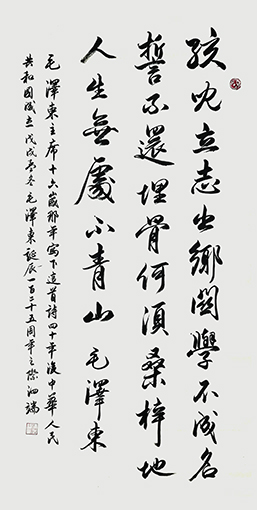 孩兒立志出鄉関學不成名
誓不還埋骨何須桑梓地
人生無處不青山 毛澤東
毛澤東主席十六歲那年寫下這首詩四十年後中華人民
共和國成立戊戌冬毛澤東誕辰一百二十五周年之際泗端